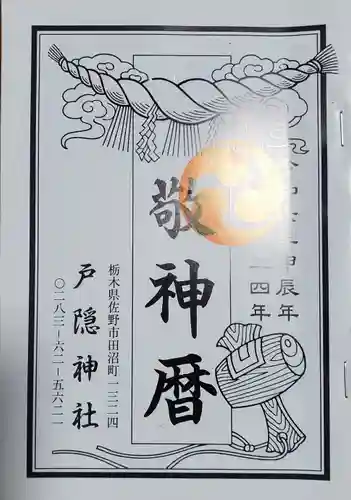 甲辰年
二四年
敬神暦
栃木県佐野市田沼町一三二四
戸隠神社
〇二八三ー六二ー五六二一